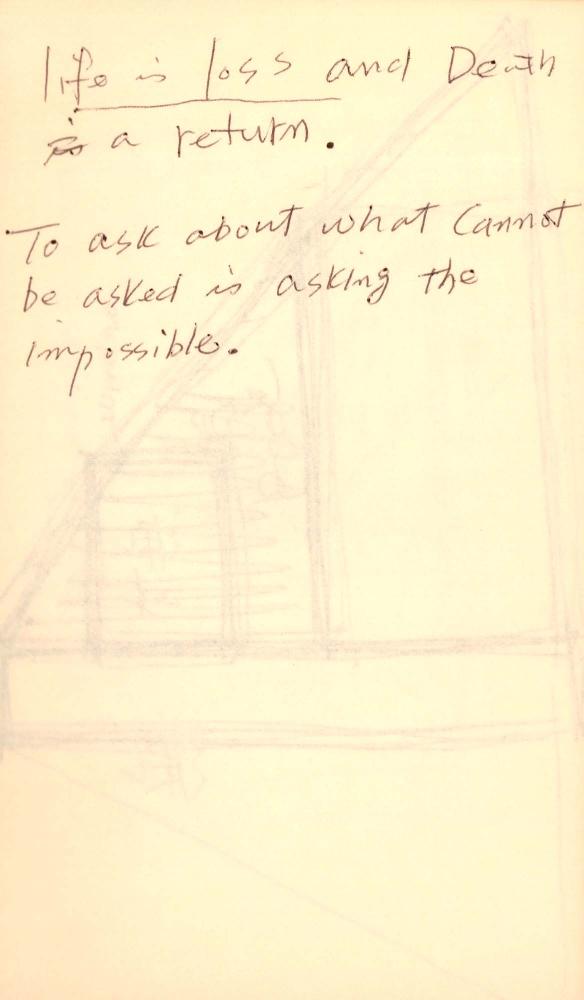 life is loss and Death
is a return.
To ask about what Cannot
be asked is asking the
impossible.